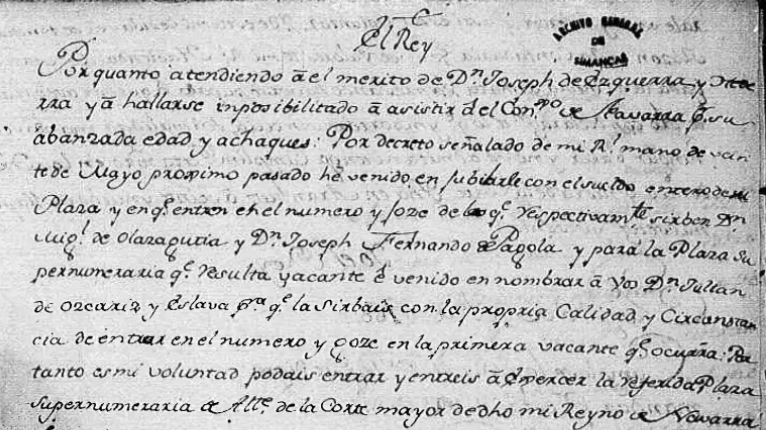 El Rey
ARCHIVO GENERAL
DE
SIMANCAS
Por quanto atendiendo â el merito de Dn. Joseph de Ezquerra y
rra y â hallarse inposibilitado â asistir â el Con.º de Navarra p.r su
abanzada edad y achaques: Por decreto señalado de mi Rl. mano de vein
te de Mayo proximo pasado he venido en jubilarle con el sueldo entero de su
Plaza y en q.e entren en el numero y Goze de lo q.e respectivam.te sirben Dn.
Mig.l de Olazagutia y Dn. Joseph Fernando de Pagola y para la Plaza su
pernumeraria q.e resulta vacante é venido en nombrar â Vos Dn. Julian
de Ozcariz y Eslava p.ra q.e la Sirbais con la propria Calidad y Circonstan
cia de entrar en el numero y goze en la primera vacante q.e ocurra: Por
tanto es mi voluntad podais entrar y entreis â exercer la referida Plaza
Supernumeraria de Alc.e de la Corte mayor de dho mi Reyno de Navarra